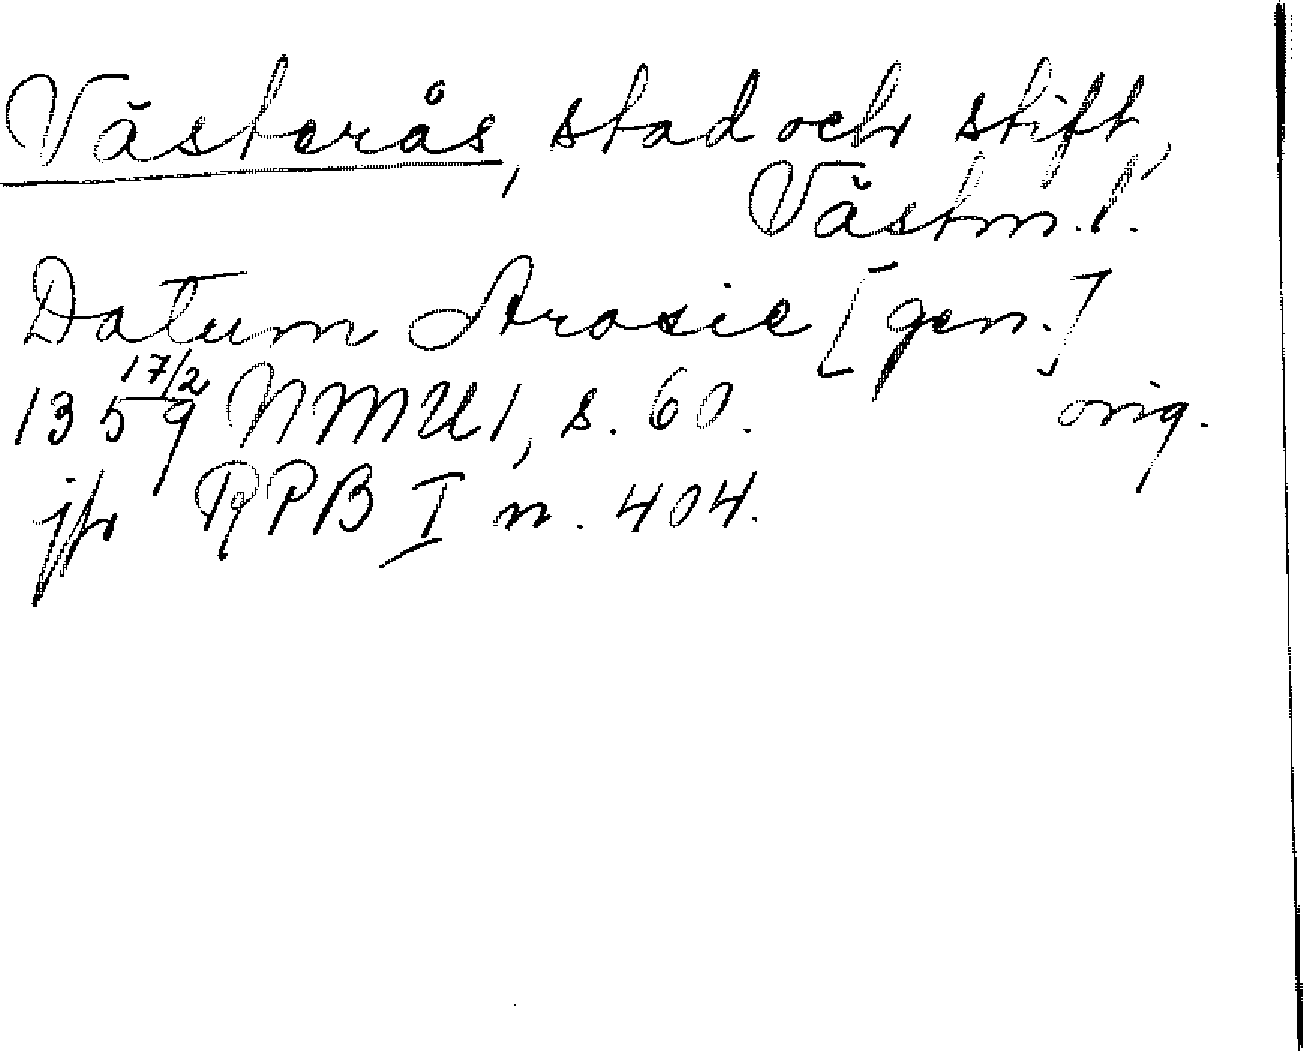 Västerås, stad och stift,
Västm. l.
Datum Arosie [gen.]
17/2
1359 NMU 1, s. 60. orig.
jfr RPB I n. 404.